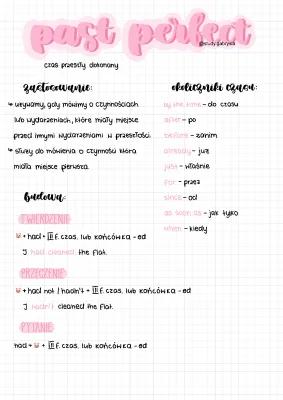 past perfect
@study.gabrysia
czas przeszły dokonany
zastosowanie:
↳ używamy, gdy mówimy o czynnościach
lub wydarzeniach, które miały miejsce
przed innymi wydarzeniami w przeszłości.
↳ służy do mówienia o czynności która
miała miejsce pierwsza.
budowa:
TWIERDZENIE
+ had + III f. czas. lub końcówka -ed
I had cleaned the flat.
PRZECZENIE
+ had not / hadn't + III f. czas. lub końcówka -ed
I hadn't cleaned the flat.
PYTANIE
had + + III f. czas. lub końcówka -ed
okoliczniki czasu:
by the time - do czasu
after - po
before - zanim
already - już
just - właśnie
for - przez
since - od
as soon as - jak tylko
when - kiedy